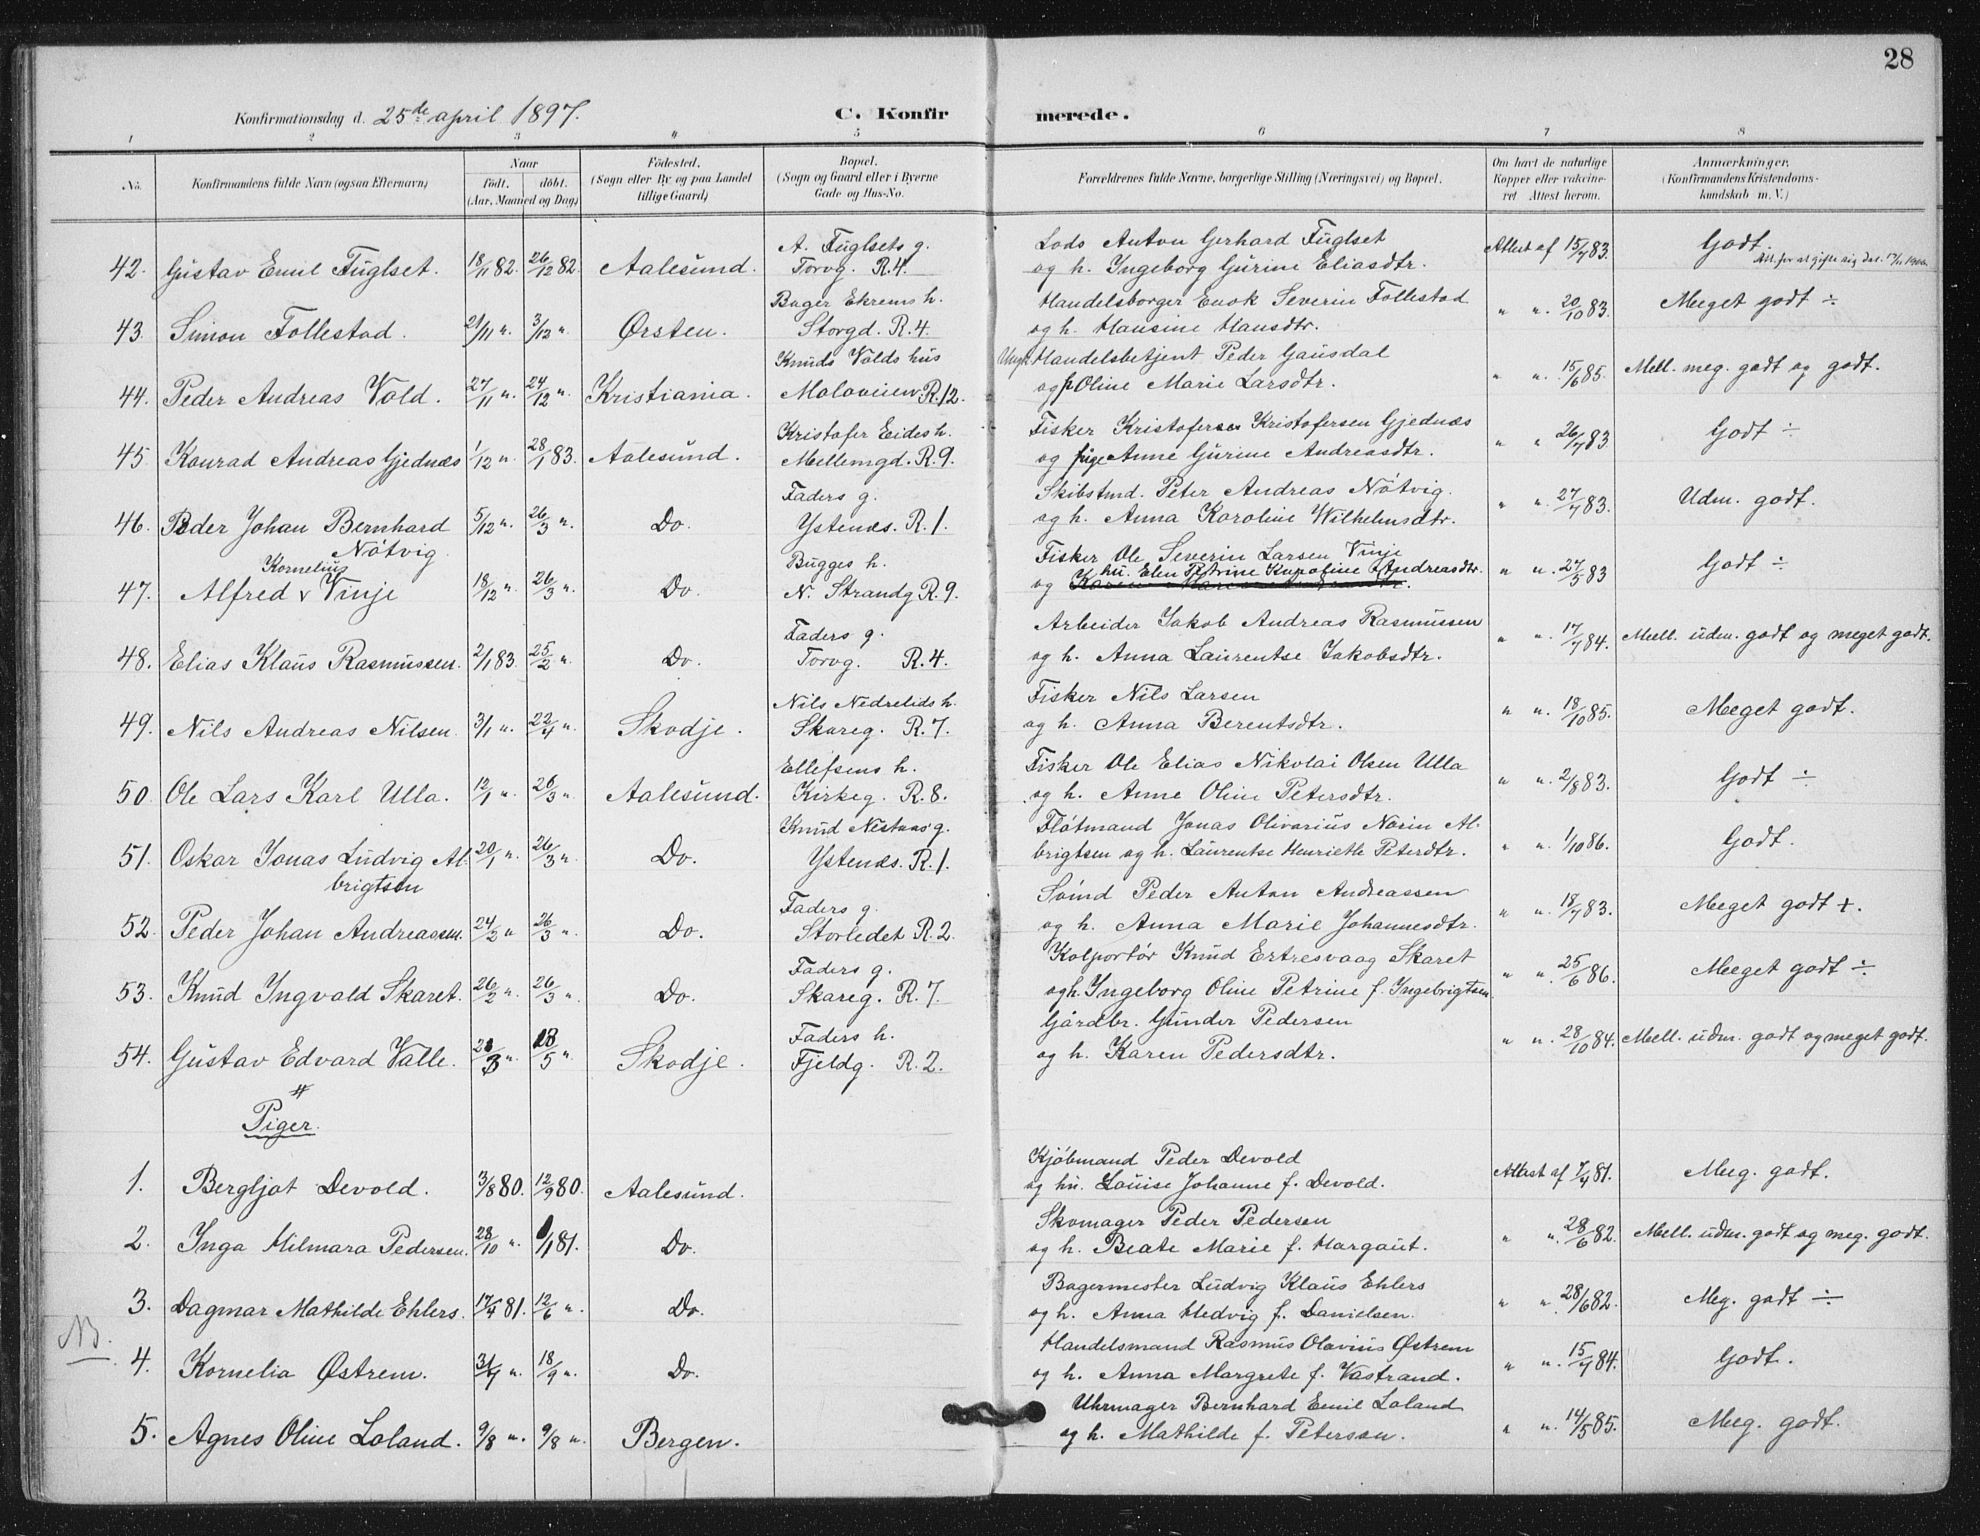 28
Konfirmationsdag d. 25de april 1897. C. Konfirmerede.
1 2 3 4 5 6 7 8
No. Konfirmandens fulde Navn (ogsaa Efternavn) Naar födt. döbt. (Aar, Maaned og Dag) Födested. (Sogn eller By og paa Landet tillige Gaard) Bopæl. (Sogn og Gaard eller i Byerne Gade og Hus-No. Forældrenes fulde Navne, borgerlige Stilling (Næringsvei) og Bopæl. Om havt de naturlige Kopper eller vakcineret Attest herom. Anmærkninger. (Konfirmandens Kristendomskundskab m. V.)
A. Fuglsets g. Lods Anton Gerhard Fuglset
42. Gustav Emil Fuglset. 18/11 82. 26/12 82. Aalesund. Torvg. R. 4. og h. Ingeborg Gurine Eliasdtr. Attest af 15/7 83. Godt.
Bager Ekrems h. Handelsborger Enok Severin Follestad
43. Simon Follestad. 21/11 ". 3/12 ". Ørsten. Storgd. R. 4. og h. Hansine Hansdtr. " ". 20/10 83. Meget godt ÷
Knuds Volds hus Ungk. Handelsbetjent Peder Gausdal
44. Peder Andreas Vold. 27/11 ". 24/12 ". Kristiania. Moloveien R. 12. og p Oline Marie Larsdtr. " ". 15/6 85. Mell. meg. godt og godt.
Kristofer Eides h. Fisker Kristofersen Kristofersen Gjednæs
45. Konrad Andreas Gjednæs 1/12 ". 28/1 83. Aalesund. Mellemgd. R. 9. og pige Anne Gurine Andreasdtr. " " 26/7 83 Godt ÷
Faders g. Skibstmd. Peter Andreas Nötvig.
46. Peder Johan Bernhard 5/12 ". 26/3 ". Do. Ystenæs. R. 1. og h. Anna Karoline Wilhelmsdtr. " ". 27/7 83. Udm. godt.
Nötvig.
Kornelius Bugges h. Fisker Ole Severin Larsen Vinje
47. Alfred v Vinje 18/12 ". 26/3 ". Do. N. Strandg R. 9. og hu. Elen Petrine Karoline Andreasdtr. " ". 27/5 83 Godt ÷
Faders g. Arbeider Jakob Andreas Rasmussen
48. Elias Klaus Rasmussen. 2/1 83. 25/2 ". Do. Torvg. R. 4. og h. Anna Laurentse Jakobsdtr. " ". 17/7 84. Mell. udm. godt og meget godt.
Nils Nedrelids h. Fisker Nils Larsen
49. Nils Andreas Nilsen 3/1 ". 22/4 ". Skodje. Skareg. R. 7. og h. Anna Berentsdtr. " ". 18/10 85. Meget godt.
Ellefsens h. Fisker Ole Elias Nikolai Olsen Ulla
50. Ole Lars Karl Ulla. 12/1 ". 26/3 ". Aalesund. Kirkeg. R. 8. og h. Anne Oline Petersdtr. " ". 2/8 83. Godt ÷
Knud Nestaas' g. Flötmand Jonas Olivarius Norin Al-
51. Oskar Jonas Ludvig Al- 20/1 ". 26/3 ". Do. Ystenæs. R. 1. brigtsen og h. Laurentse Henriette Peterdtr. " ". 1/10 86. Godt.
brigtsen
Faders g. Sömd Peder Anton Andreassen
52. Peder Johan Andreassen. 24/2 ". 26/3 ". Do. Storledet R. 2. og h. Anna Marie Johannesdtr. " ". 18/7 83. Meget godt +.
Faders g. Kolportör Knud Ertresvaag Skaret
53. Knud Ingvald Skaret. 26/2 ". 26/3 ". Do. Skareg. R. 7. og h. Ingeborg Oline Petrine f. Ingebrigtsen " ". 25/6 86. Meget godt ÷
Faders h. Gårdbr. Gunder Pedersen
54. Gustav Edvard Valle. /3 ". 18/5 ". Skodje. Fjeldg. R. 2. og h. Karen Pedersdtr. " ". 28/10 84. Mell. udm. godt og meget godt.
Piger.
Kjöbmand Peder Devold
1. Bergljot Devold. 3/8 80. 12/9 80. Aalesund. og hu. Louise Johanne f. Devold. Attest af 7/4 81. Meg. godt.
Skomager Peder Pedersen
2. Inga Hilmara Pedersen. 28/10 ". /1 81. Do. og h. Beate Marie f. Hargaut. " ". 28/6 82. Mell. udm. godt og meg. godt.
Bagermester Ludvig Klaus Ehlers
3. Dagmar Mathilde Ehlers. 17/4 81. 12/6 ". Do. og h. Anna Hedvig f. Danielsen. " ". 28/6 82. Meg. godt ÷
NB. Handelsmand Rasmus Olavius Østrem
4. Kornelia Østrem. 31/7 ". 18/9 ". Do. og h. Anna Margrete f. Vastrand. " ". 15/7 84. Godt.
Uhrmager Bernhard Emil Loland
5. Agnes Oline Loland. 9/8 ". 9/8 ". Bergen. og h. Mathilde f. Petersen. " ". 14/5 85. Meg. godt.